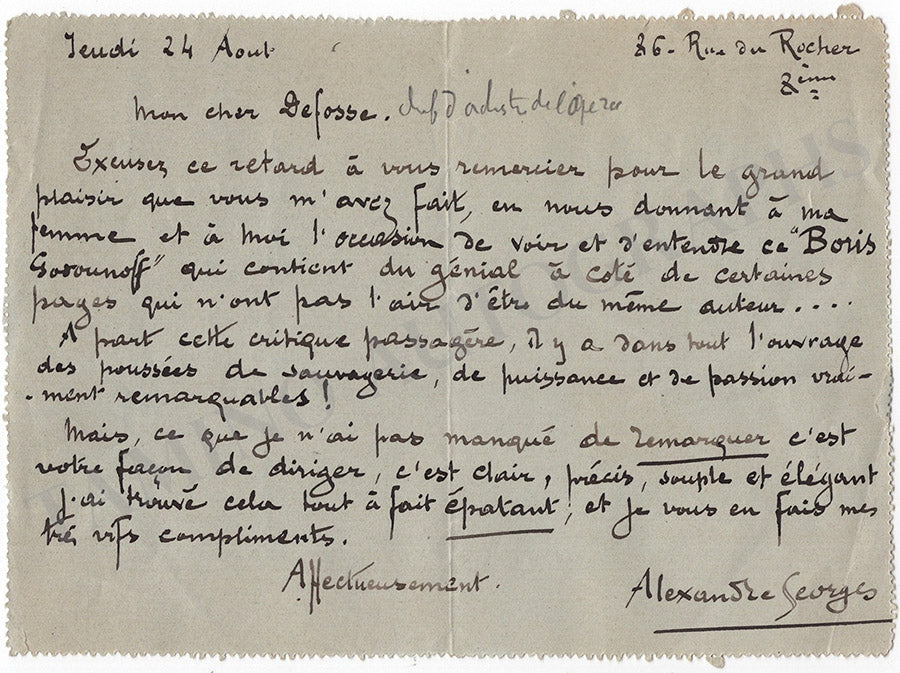 Jeudi 24 Aout
86 - Rue du Rocher
8ème
Mon cher Defosse. chef d'orchestre de l'Opera
Excusez ce retard à vous remercier pour le grand
plaisir que vous m'avez fait, en nous donnant à ma
femme et à moi l'occasion de voir et d'entendre ce "Boris
Godounoff" qui contient du génial à coté de certaines
pages qui n'ont pas l'air d'être du même auteur....
A part cette critique passagère, il y a dans tout l'ouvrage
des poussées de sauvagerie, de puissance et de passion vrai-
-ment remarquables!
Mais, ce que je n'ai pas manqué de remarquer c'est
votre façon de diriger, c'est clair, précis, souple et élégant
j'ai trouvé cela tout à fait épatant, et je vous en fais mes
très vifs compliments.
Affectueusement.
Alexandre Georges